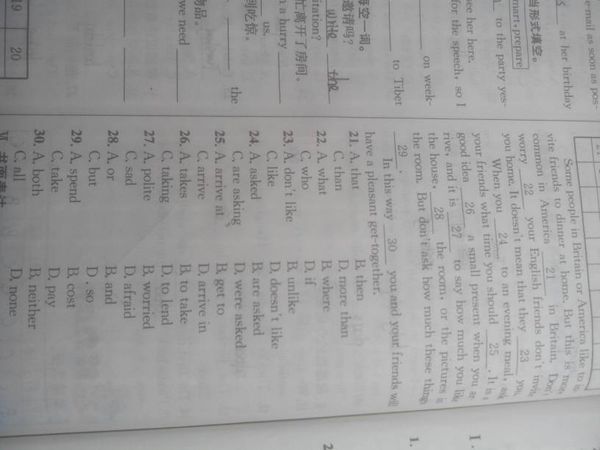 e-mail as soon as pos-
at her birthday
当形式填空。
mart, prepare
to the party yes-
see her here.
for the speech, so I
on week-
to Tibet
每空一词。
邀请吗?
the
itation?
忙离开了房间。
n a hurry
us.
到吃惊。
the
物品。
we need
19 20
Some people in Britain or America like to in
vite friends to dinner at home. But this is mor
common in America 21 in Britain. Don'
worry 22 your English friends don't invi
you home. It doesn't mean that they 23 you
When you 24 to an evening meal, as
your friends what time you should 25 . It is a
good idea 26 a small present when you ar
rive, and it is 27 to say how much you like
the house, 28 the room, or the pictures i
the room. But don't ask how much these thing
29 .
In this way 30 you and your friends wil
have a pleasant get-together.
21. A. that B. then
C. than D. more than
22. A. what B. where
C. who D. if
23. A. don't like B. unlike
C. like D. doesn't like
24. A. asked B. are asked
C. are asking D. were asked
25. A. arrive at B. get to
C. arrive D. arrive in
26. A. takes B. to take
C. taking D. to lend
27. A. polite B. worried
C. sad D. afraid
28. A. or B. and
C. but D. so
29. A. spend B. cost
C. take D. pay
30. A. both B. neither
C. all D. none
V. 书面表达
I.
1.
2